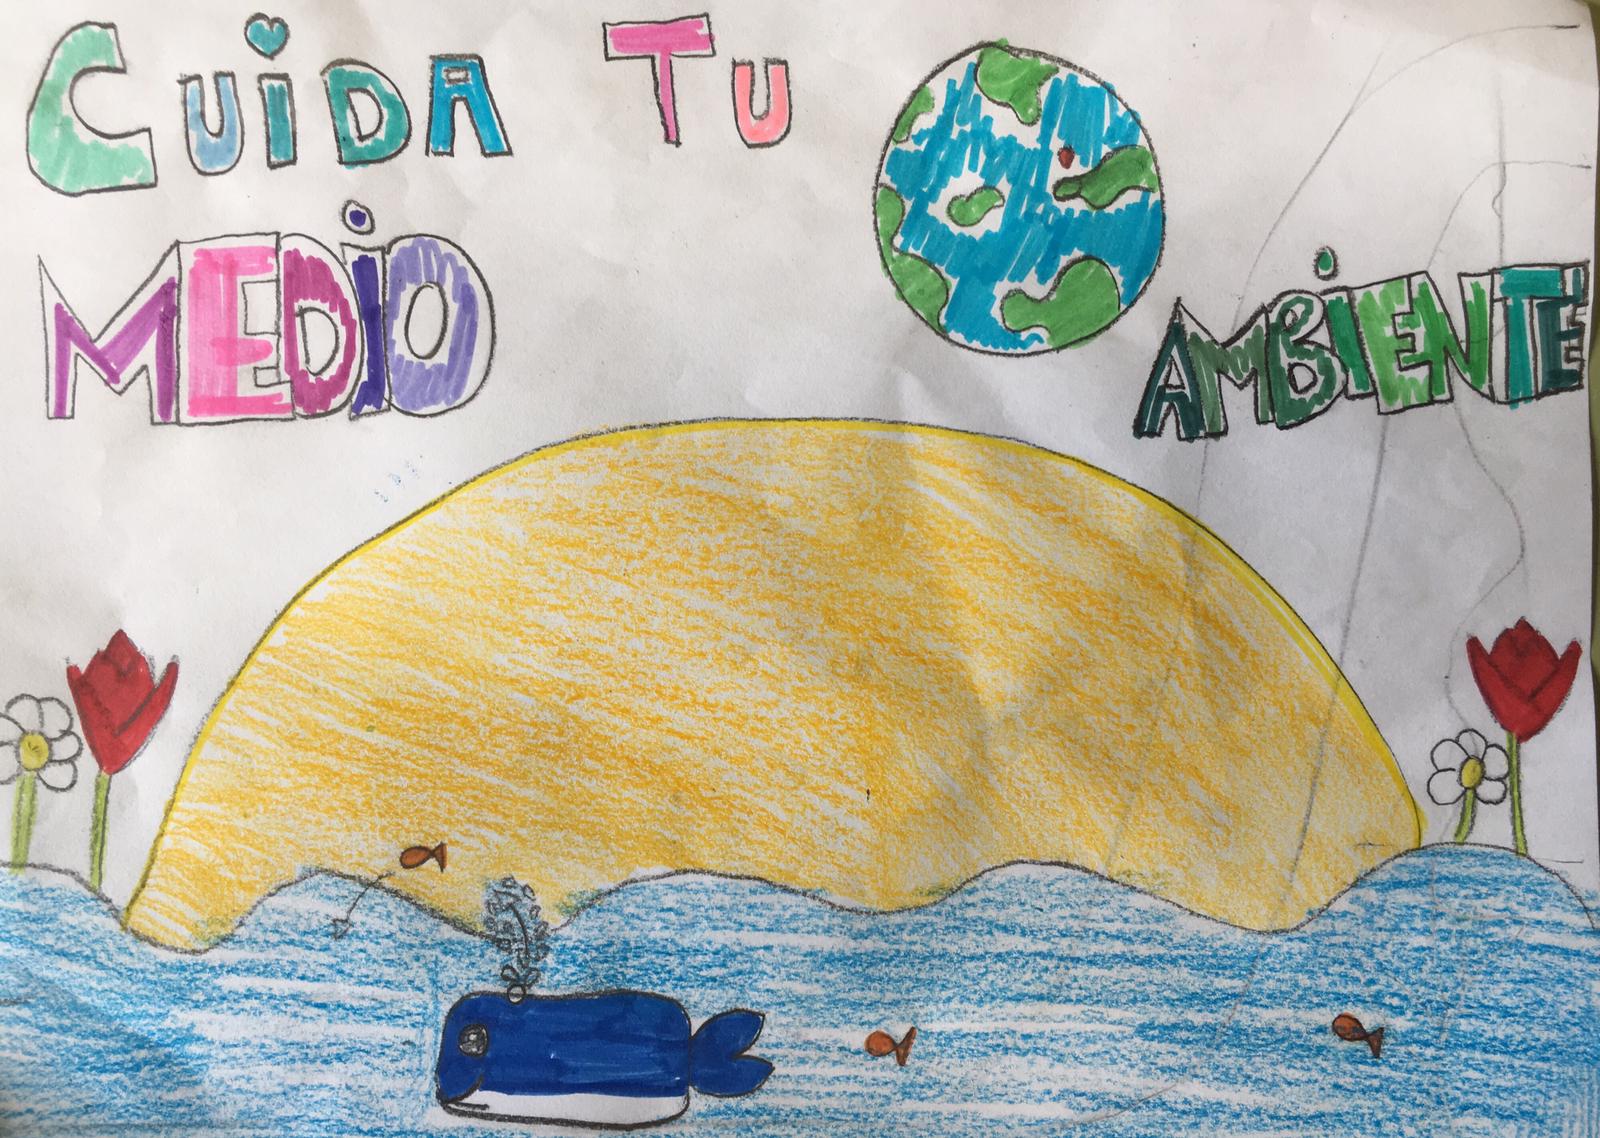 CUIDA TU
MEDIO
AMBIENTE